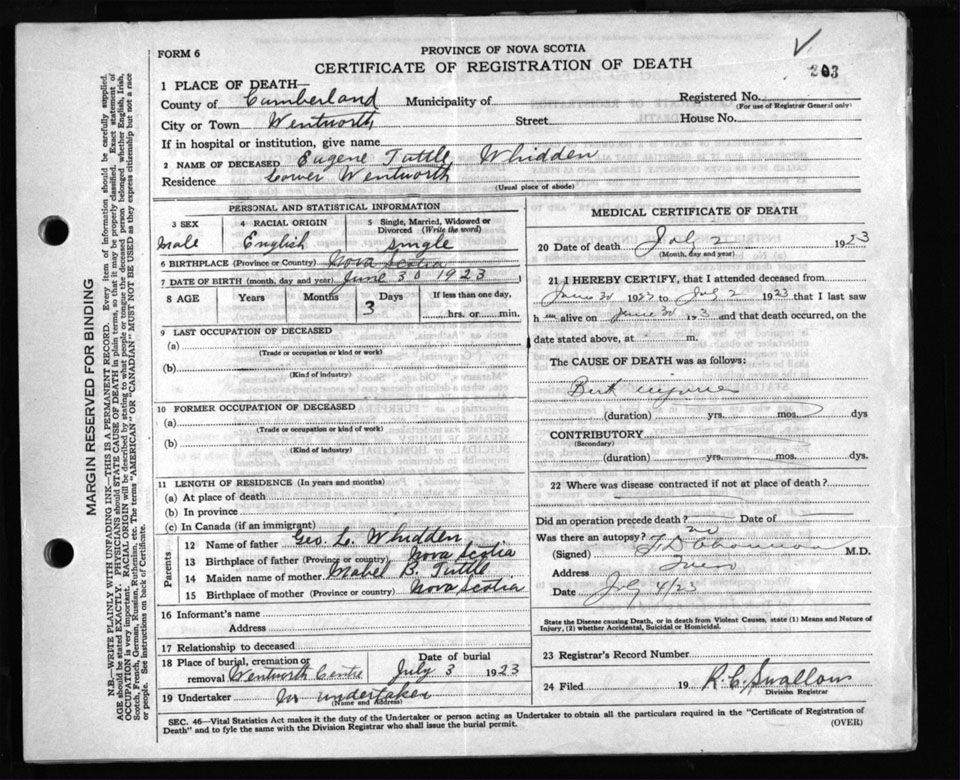 FORM 6
PROVINCE OF NOVA SCOTIA
CERTIFICATE OF REGISTRATION OF DEATH
203
1 PLACE OF DEATH—
County of Cumberland Municipality of
Registered No.
(For use of Registrar General only)
City or Town Wentworth Street House No.
If in hospital or institution, give name
2 NAME OF DECEASED Eugene Tuttle Whidden
Residence Lower Wentworth
(Usual place of abode)
PERSONAL AND STATISTICAL INFORMATION
3 SEX
Male
4 RACIAL ORIGIN
English
5 Single, Married, Widowed or
Divorced (Write the word)
single
6 BIRTHPLACE (Province or Country) Nova Scotia
7 DATE OF BIRTH (month, day and year) June 30 1923
8 AGE Years Months Days If less than one day,
3 hrs. or min.
9 LAST OCCUPATION OF DECEASED
(a)
(Trade or occupation or kind or work)
(b)
(Kind of industry)
10 FORMER OCCUPATION OF DECEASED
(a)
(Trade or occupation or kind of work)
(b)
(Kind of industry)
11 LENGTH OF RESIDENCE (In years and months)
(a) At place of death
(b) In province
(c) In Canada (if an immigrant)
Parents
12 Name of father Geo. L. Whidden
13 Birthplace of father Nova Scotia
14 Maiden name of mother Mabel B. Tuttle
15 Birthplace of mother (Province or country) Nova Scotia
16 Informant's name
Address
17 Relationship to deceased
18 Place of burial, cremation or
removal Wentworth Centre
Date of burial
July 3 1923
19 Undertaker No undertaker
(Name and Address)
MEDICAL CERTIFICATE OF DEATH
20 Date of death July 2 1923
(Month, day and year)
21 I HEREBY CERTIFY, that I attended deceased from
June 30 1923 to July 2 1923 that I last saw
h alive on June 30 and that death occurred, on the
date stated above, at m.
The CAUSE OF DEATH was as follows:
Birth injuries
(duration) yrs. mos. dys
CONTRIBUTORY
(Secondary)
(duration) yrs. mos. dys.
22 Where was disease contracted if not at place of death?
Did an operation precede death? Date of
Was there an autopsy? no
(Signed) M.D.
Address
Date July 4/23
State the Disease causing Death, or in death from Violent Causes, state (1) Means and Nature of
Injury, (2) whether Accidental, Suicidal or Homicidal.
23 Registrar's Record Number
24 Filed 19 R. C. Swallow
Division Registrar
SEC. 46—Vital Statistics Act makes it the duty of the Undertaker or person acting as Undertaker to obtain all the particulars required in the "Certificate of Registration of
Death" and to fyle the same with the Division Registrar who shall issue the burial permit.
(OVER)
MARGIN RESERVED FOR BINDING
N.B.—WRITE PLAINLY WITH UNFADING INK—THIS IS A PERMANENT RECORD. Every item of information should be carefully supplied.
AGE should be stated EXACTLY. PHYSICIANS should STATE CAUSE OF DEATH in plain terms, so that it may be properly classified. Exact statement of
OCCUPATION is very important. RACIAL ORIGIN will be described by stating to what people or tongue the deceased person belonged whether English, Irish,
Scotch, French, German, Russian, Ruthenian, etc. The terms "AMERICAN" OR "CANADIAN" MUST NOT BE USED as they express citizenship but not a race
or people. See instructions on back of Certificate.